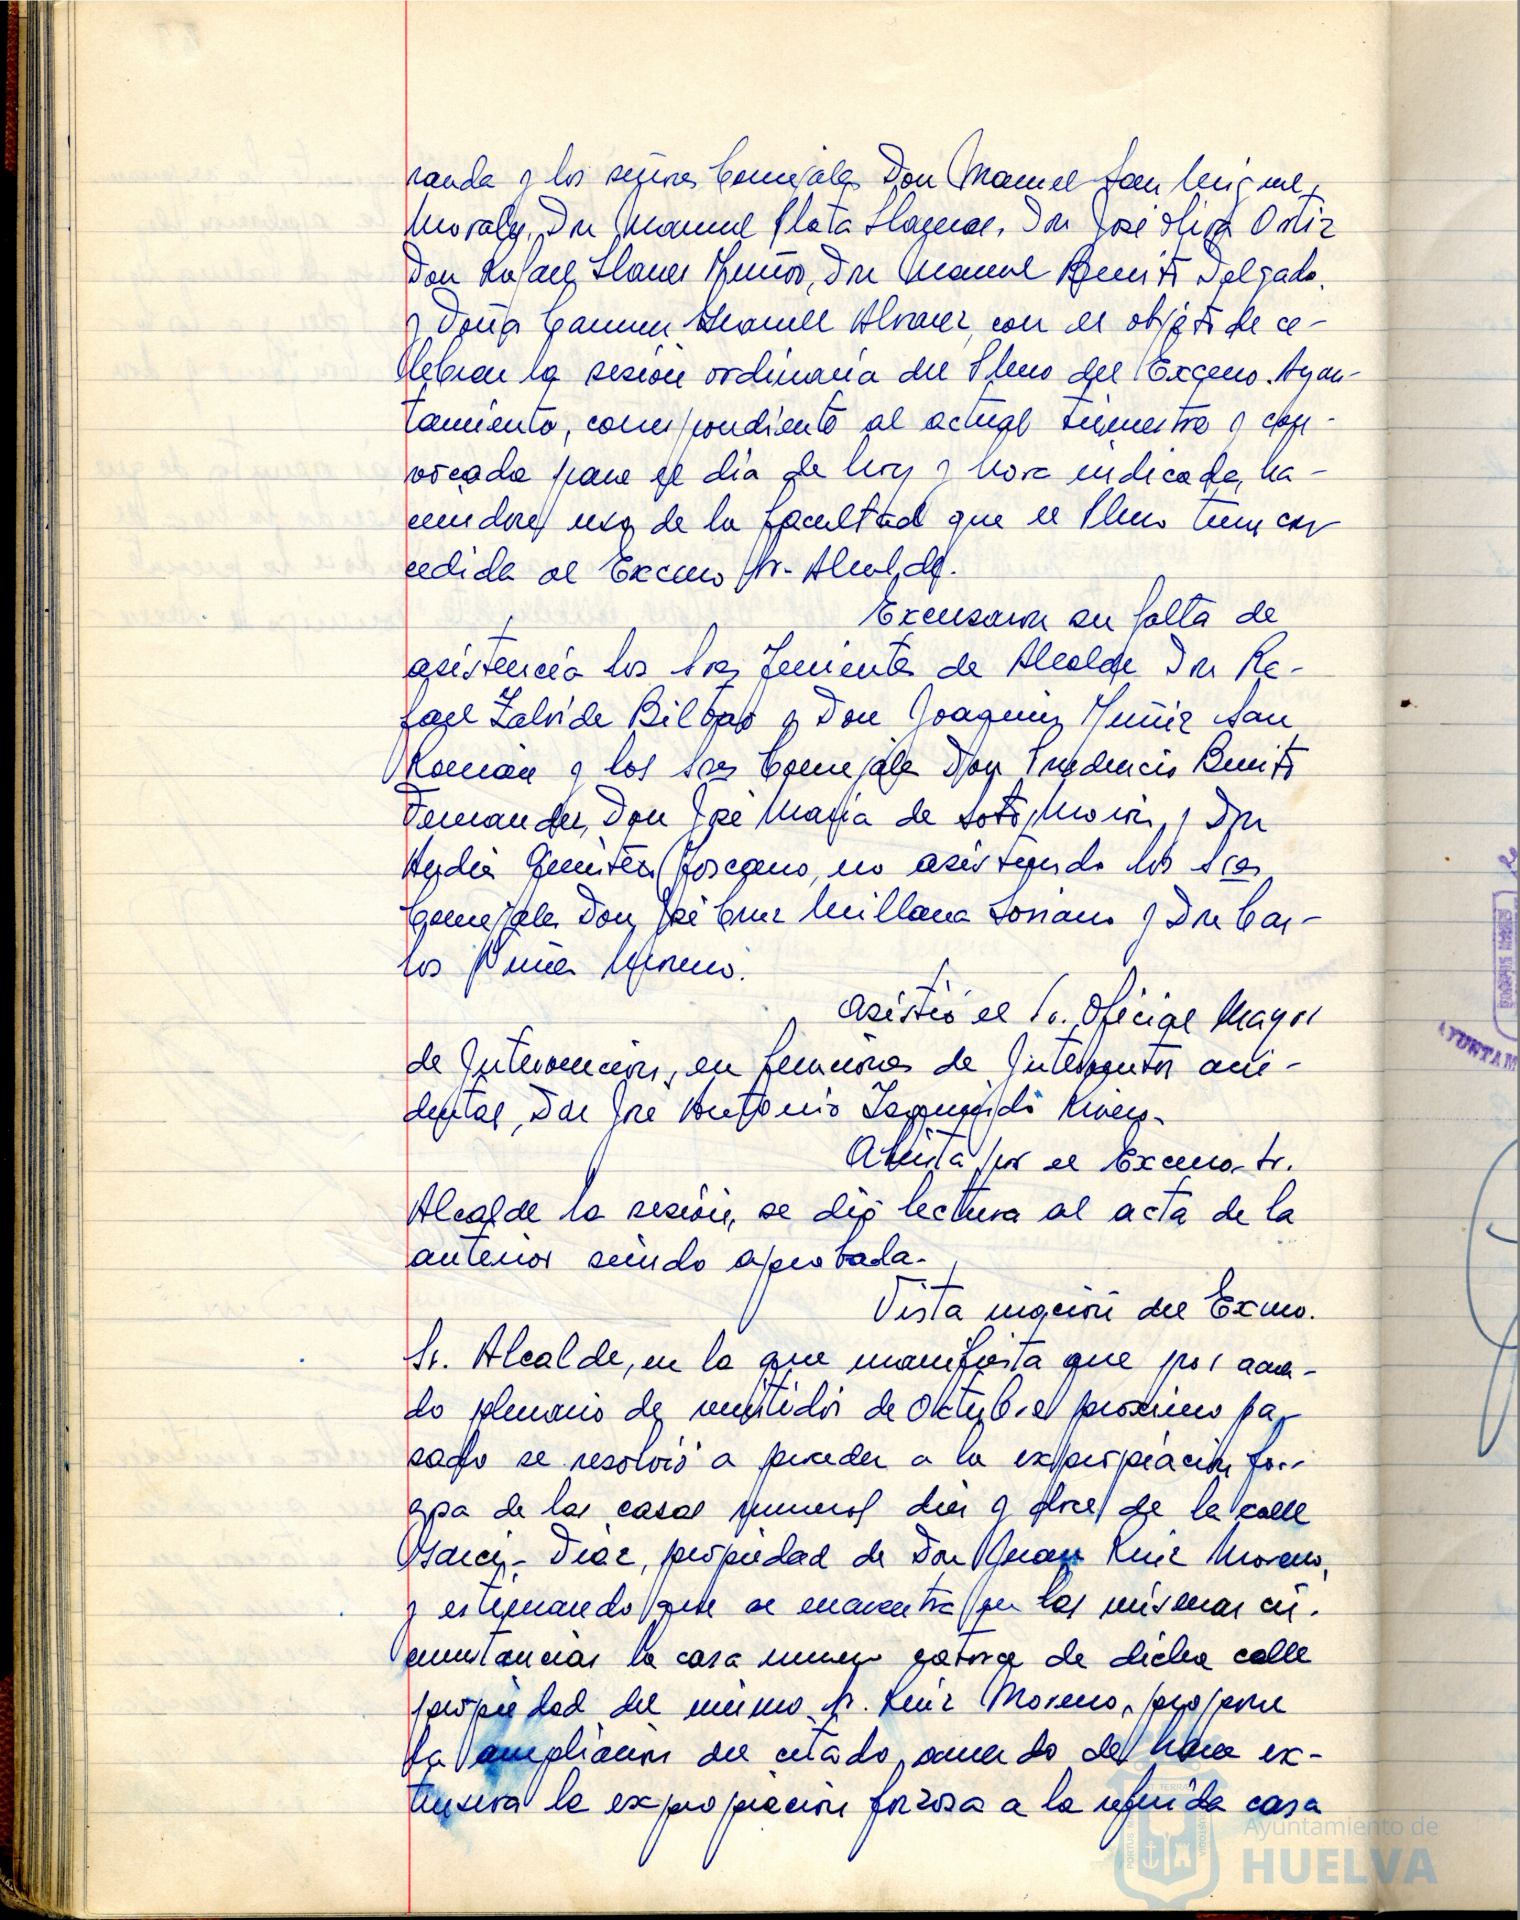 randa y los señores Concejales Don Manuel San Miguel
Morales, Don Manuel Plata Llamas, Don José Oliva Ortiz
Don Rafael Llanes Muñoz, Don Manuel Benito Delgado,
y Doña Carmen Alvarez, con el objeto de ce-
lebrar la sesión ordinaria del Pleno del Excmo. Ayun-
tamiento, correspondiente al actual trimestre y con-
vocada para el día de hoy y hora indicada, ha-
ciendose uso de la facultad que el Pleno tiene con
cedida al Excmo Sr. Alcalde.
Excusaron su falta de
asistencia los Sres Tenientes de Alcalde Don Ra-
fael Zalvide Bilbao y Don Joaquin Muñiz San
Román y los Sres Concejales Don Prudencio Benito
Fernandez, Don José María de Soto Morón y Don
Quintero Toscano, no asistiendo los Sres
Concejales Don José Cruz Millana Soriano y Don Car-
los Moreno.
Asistió el Sr. Oficial Mayor
de Intervención, en funciones de Interventor acci-
dental, Don José Antonio Rivero.
Abierta por el Excmo. Sr.
Alcalde la sesión, se dió lectura al acta de la
anterior siendo aprobada.
Vista moción del Excmo.
Sr. Alcalde, en la que manifiesta que por acuer-
do plenario de veintidos de Octubre proximo pa-
sado se resolvió a proceder a la expropiación for-
zosa de las casas numeros diez y doce de la calle
Garci-Diaz, propiedad de Don Juan Ruiz Moreno,
y estimando que se encuentra en las mismas cir-
cunstancias la casa numero catorce de dicha calle
propiedad del mismo Sr. Ruiz Moreno, propone
la ampliación del citado acuerdo de hacer ex-
tensiva la expropiación forzosa a la referida casa
Ayuntamiento de
HUELVA